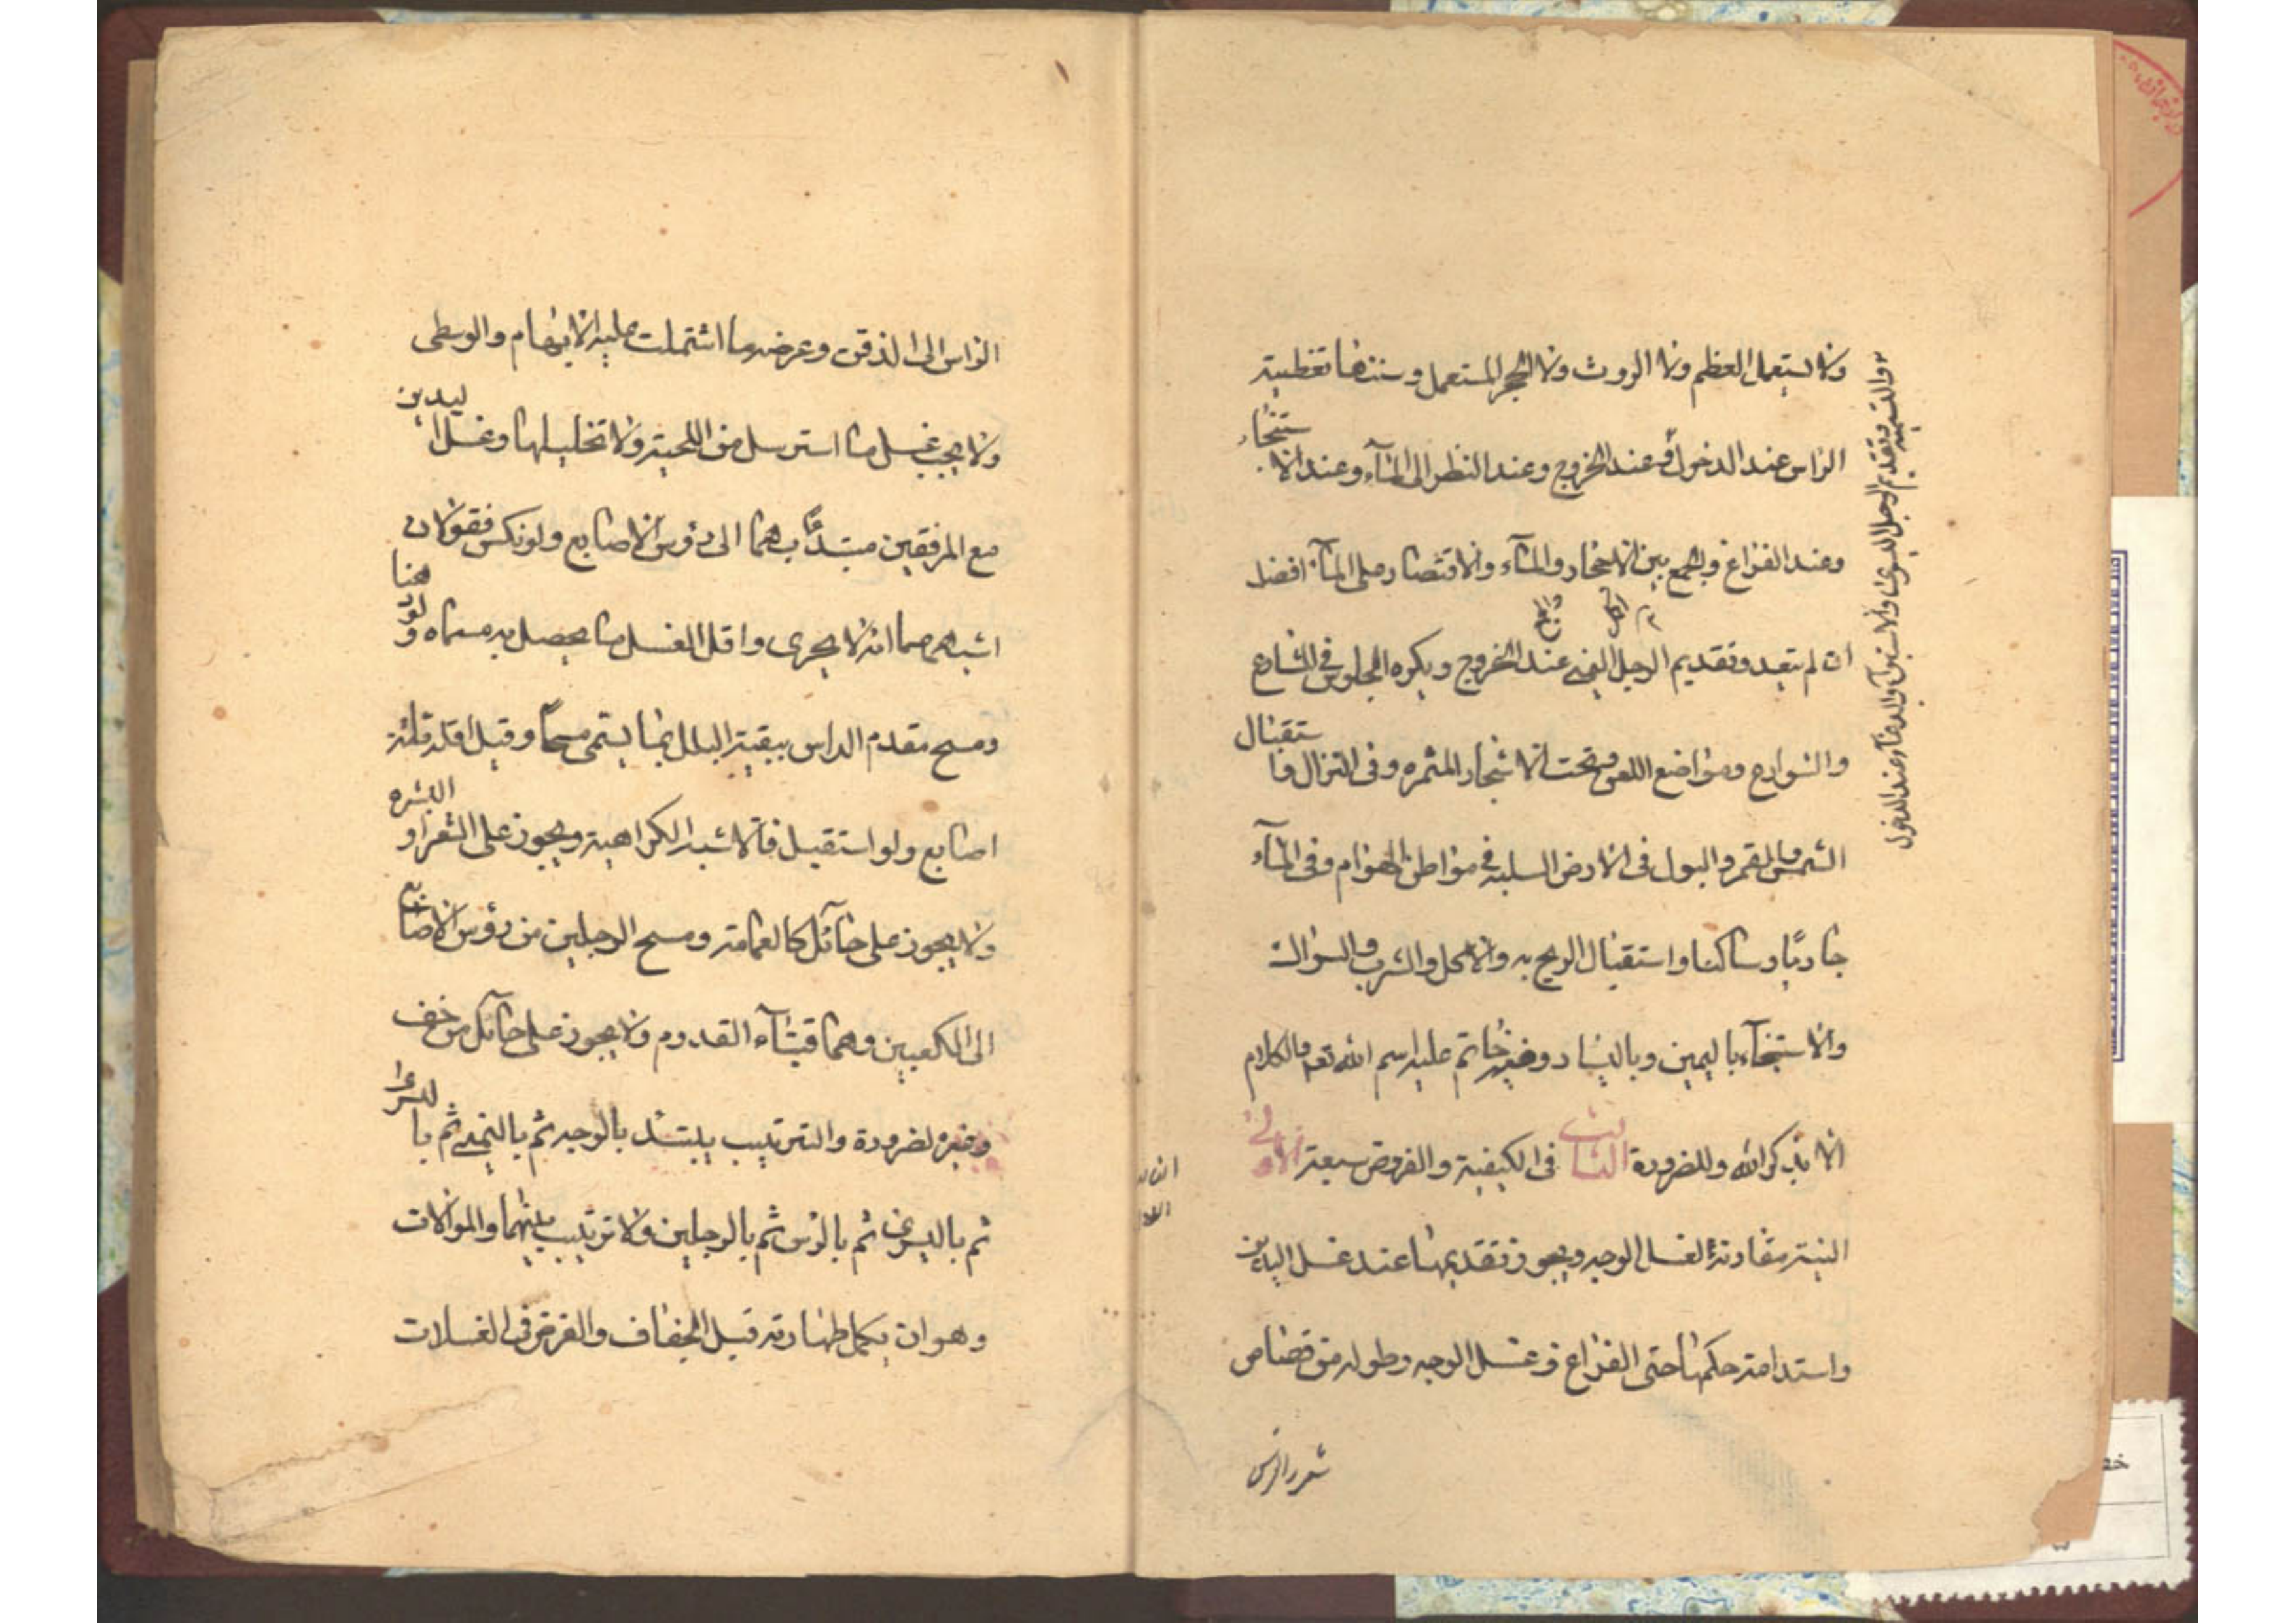 ولا يستعمل العظم ولا الروث ولا الحجر المستعمل وسننها تغطية
الراس عند الدخول وعند الخروج وعند النظر الى المآء وعند الاستنجاء
وعند الفراغ والجمع بين الاحجار والمآء والاقتصار على المآء افضل
ان لم يتعد وتقديم الرجل اليمنى عند الخروج ويكره الجلوس في المشارع
والشوارع ومواضع اللعن وتحت الاشجار المثمره وفى النزال واستقبال
الشمس والقمر والبول فى الارض الصلبه في مواطن الهوام وفى المآء
جاريا وساكنا واستقبال الريح به والاكل والشرب والسواك
والاستنجآء باليمين وباليسار وفيه خاتم عليه اسم الله تع والكلام
الا بذكر الله وللضرورة الثالث فى الكيفية والفروض سبعة الاولى
النية مقارنة لغسل الوجه ويجوز تقديمها عند غسل اليدين
واستدامة حكمها حتى الفراغ وغسل الوجه وطوله من قصاص
شعر الراس
والتسمية وتقديم الرجل اليسرى والاستبرآء والدعآء عند الدخول
الراس الى الذقن وعرضه ما اشتملت عليه الابهام والوسطى
ولا يجب غسل ما استرسل من اللحية ولا تخليلها وغسل اليدين
مع المرفقين مبتدئا بهما الى رؤس الاصابع ولو نكس فقولان
اشبههما انه لا يجزى واقل الغسل ما يحصل به مسماه ولو دهنا
ومسح مقدم الراس ببقية البلل بما يسمى مسحا وقيل اقله ثلثة
اصابع ولو استقبل فالاشبه الكراهية ويجوز على الشعر او البشره
ولا يجوز على حآئل كالعمامة ومسح الرجلين من رؤس الاصابع
الى الكعبين وهما قبتآء القدوم ولا يجوز على حآئل من خف
وغيره لضرورة والترتيب يبتدئ بالوجه ثم باليمنى ثم باليسرى
ثم باليسرى ثم بالراس ثم بالرجلين ولا ترتيب بينهما والموالات
وهو ان يكمل طهارته قبل الجفاف والفرض فى الغسلات